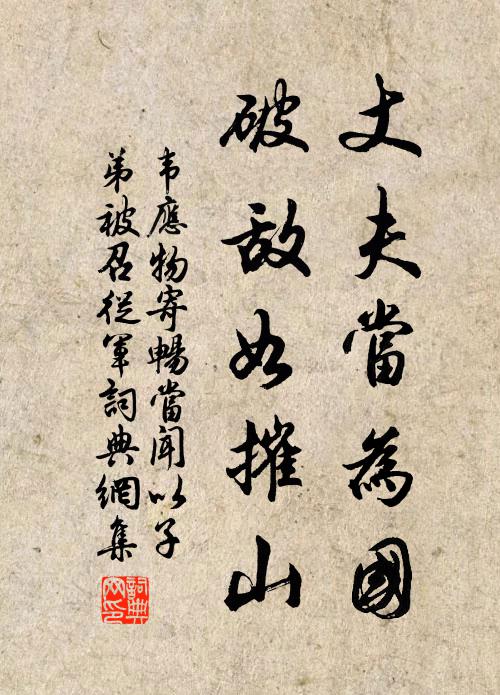 丈夫當為國
破敵如摧山
韦應物寄暢當聞以子
弟被召從軍詞典網集
詞典
网印